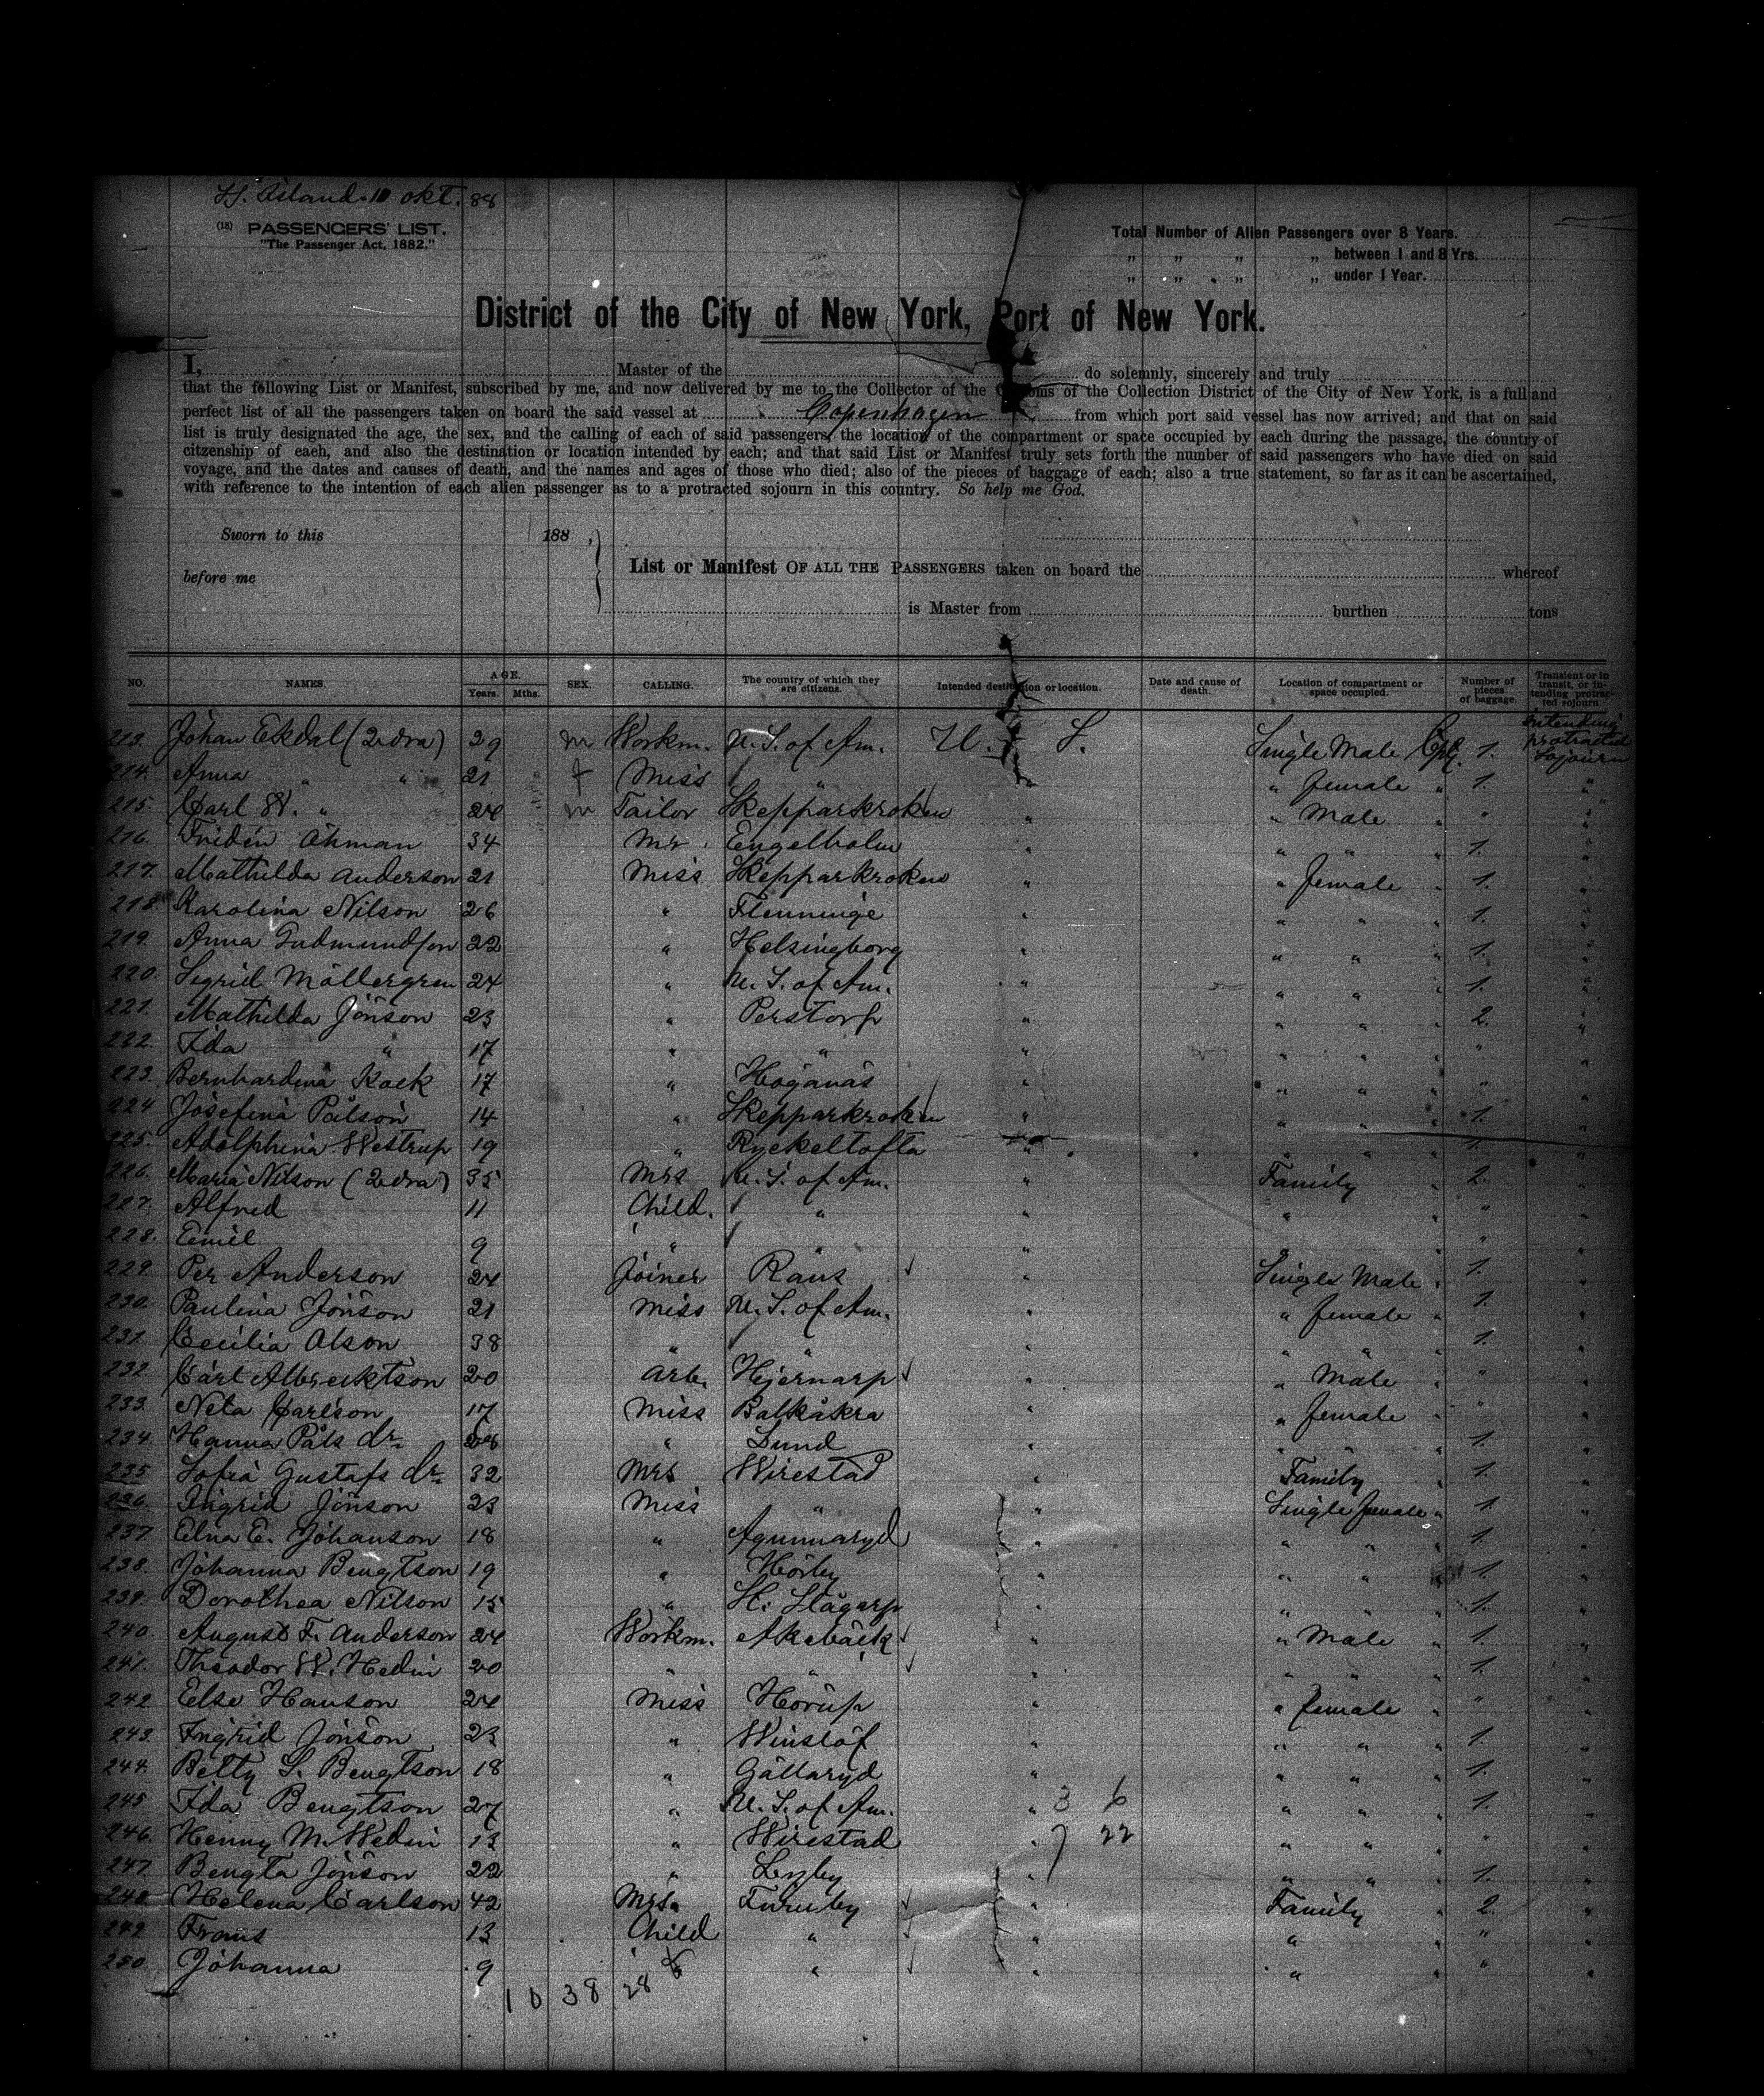 Island. 10 okt. 88
(18) PASSENGERS' LIST.
"The Passenger Act, 1882."
Total Number of Alien Passengers over 8 Years.
" " " " between 1 and 8 Yrs.
" " " " under 1 Year.
District of the City of New York, Port of New York.
I, Master of the do solemnly, sincerely and truly
that the following List or Manifest, subscribed by me, and now delivered by me to the Collector of the Customs of the Collection District of the City of New York, is a full and
perfect list of all the passengers taken on board the said vessel at Copenhagen from which port said vessel has now arrived; and that on said
list is truly designated the age, the sex, and the calling of each of said passengers, the location of the compartment or space occupied by each during the passage, the country of
citzenship of each, and also the destination or location intended by each; and that said List or Manifest truly sets forth the number of said passengers who have died on said
voyage, and the dates and causes of death, and the names and ages of those who died; also of the pieces of baggage of each; also a true statement, so far as it can be ascertained,
with reference to the intention of each alien passenger as to a protracted sojourn in this country. So help me God.
Sworn to this 188 .
before me
List or Manifest OF ALL THE PASSENGERS taken on board the whereof
is Master from burthen tons
NO. NAMES. AGE. Years. Mths. SEX. CALLING. The country of which they are citizens. Intended destination or location. Date and cause of death. Location of compartment or space occupied. Number of pieces of baggage. Transient or in transit, or intending protracted sojourn.
213. Johan Ekdal (2dra) 29 m Workm. U. S. of Am. U. S. Single Male Cpt. 1. Intending protracted Sojourn
214. Anna " " 21 f Miss " " " female " 1. "
215. Carl W. " 24 m Tailor Skepparkroken " " Male " " "
216. Fridén Åhman 34 Mr. Engelholm " " " " 1. "
217. Mathilda Anderson 21 Miss Skepparkroken " " female " 1. "
218. Karolina Nilson 26 " Flenninge " " " " 1. "
219. Anna Gudmundson 22 " Helsingborg " " " " 1. "
220. Sigrid Möllergren 24 " U. S. of Am. " " " " 1. "
221. Mathilda Jönson 23 " Perstorp " " " " 2. "
222. Ida " 17 " " " " " " " "
223. Bernhardina Kock 17 " Höganäs " " " " " "
224. Josefina Pålson 14 " Skepparkroken " " " " 1. "
225. Adolphina Westrup 19 " Ryckeltofta " " " " 1. "
226. Maria Nilson (2dra) 35 Mrs U. S. of Am. " Family " 2. "
227. Alfred 11 Child. " " " " " "
228. Emil 9 " " " " " " "
229. Per Anderson 24 Joiner Raus " Single Male " 1. "
230. Paulina Jönson 21 Miss U. S. of Am. " " female " 1. "
231. Cecilia Olson 38 " " " " " " 1. "
232. Carl Albrecktson 20 Arb. Hjernarp " " Male " " "
233. Neta Carlson 17 Miss Balkåkra " " female " " "
234. Hanna Påls dr. " Lund " " " " 1. "
235. Sofia Gustafs dr. 32 Mrs Wirestad " Family " 1. "
236. Ingrid Jönson 23 Miss " " Single female " 1. "
237. Elna E. Johanson 18 " Agunnaryd " " " " 1. "
238. Johanna Bengtson 19 " Hörby " " " " 1. "
239. Dorothea Nilson 15 " St. Slågarp " " " " 1. "
240. August F. Anderson 24 Workm. Akebäck " " Male " 1. "
241. Theodor W. Hedin 20 " " " " " " 1. "
242. Else Hanson 24 Miss Hörup " " female " " "
243. Ingrid Jönson 23 " Winslöf " " " " 1. "
244. Betty S. Bengtson 18 " Gällaryd " " " " 1. "
245. Ida Bengtson 27 " U. S. of Am. " 3 6 " " " 1. "
246. Henny M. Wedin 13 " Wirestad " 7 22 " " " " "
247. Bengta Jönson 22 " " " " " 1. "
248. Helena Carlson 42 Mrs. Furuby " Family " 2. "
249. Frans 13 Child " " " " " "
250. Johanna 9 " " " " " " "
10 38 28